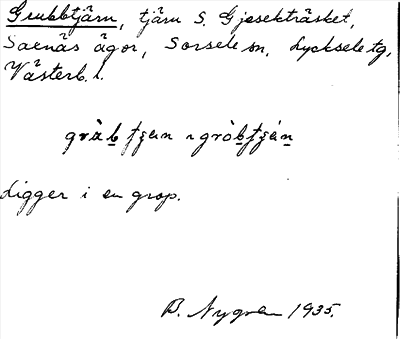 Grubbtjärn, tjärn S. Gjesekträsket,
Saenäs ägor, Sorsele sn, Lycksele tg,
Västerb. l.
Ligger i en grop.
B. Nygren 1935.